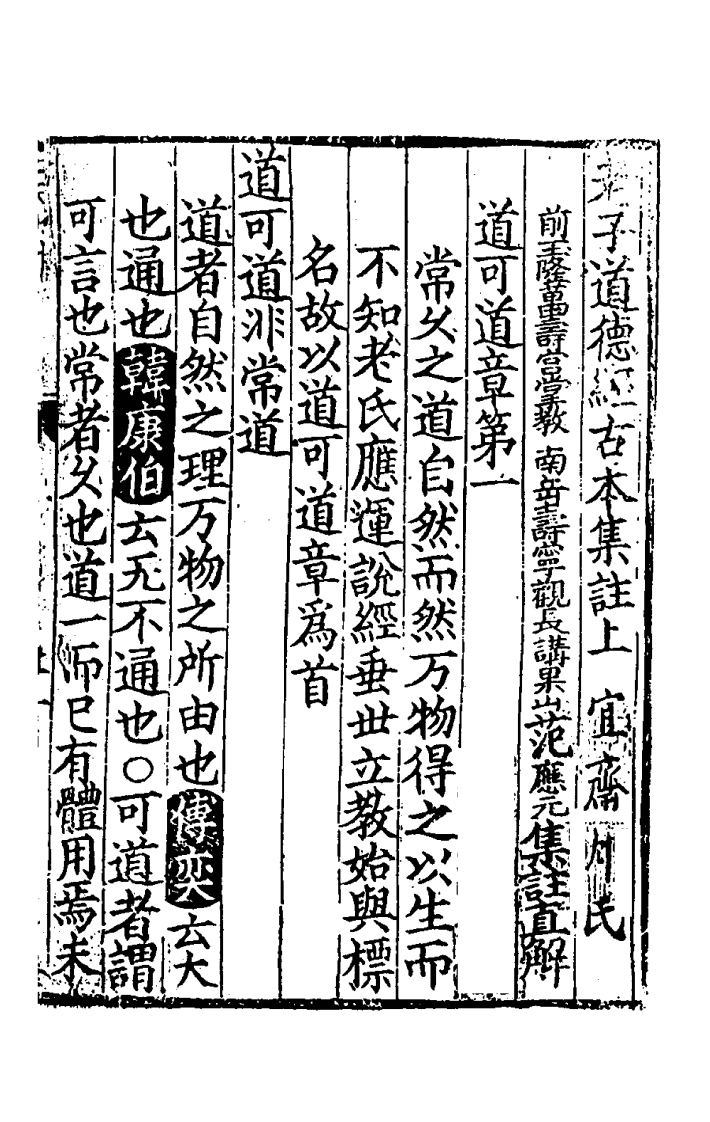 老子道德經古本集註上　宜齋
前玉隆萬壽宮掌教　南岳壽寧觀長講果山范應元集註直解
道可道章第一
常久之道自然而然万物得之以生而
不知老氏應運說經垂世立教始與標
名故以道可道章爲首
道可道非常道
道者自然之理万物之所由也傅奕云大
也通也韓康伯云无不通也○可道者謂
可言也常者久也道一而已有體用焉未